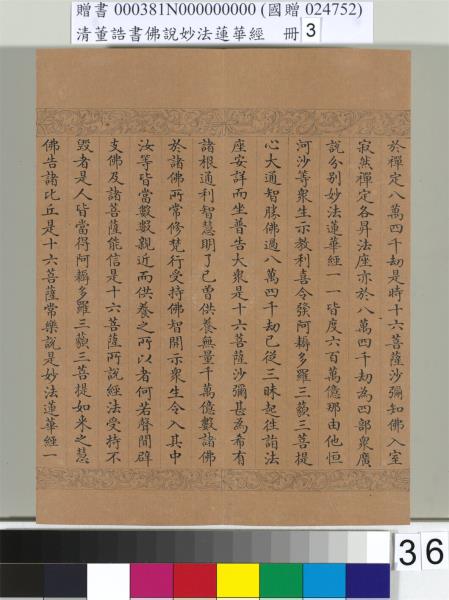 贈書 000381N000000000 (國贈 024752)
清董誥書佛說妙法蓮華經 冊 3
於禪定八萬四千劫是時十六菩薩沙彌知佛入室
寂然禪定各昇法座亦於八萬四千劫為四部眾廣
說分別妙法蓮華經一一皆度六百萬億那由他恒
河沙等眾生示教利喜令發阿耨多羅三藐三菩提
心大通智勝佛過八萬四千劫已從三昧起往詣法
座安詳而坐普告大眾是十六菩薩沙彌甚為希有
諸根通利智慧明了已曾供養無量千萬億數諸佛
於諸佛所常修梵行受持佛智開示眾生令入其中
汝等皆當數數親近而供養之所以者何若聲聞辟
支佛及諸菩薩能信是十六菩薩所說經法受持不
毀者是人皆當得阿耨多羅三藐三菩提如來之慧
佛告諸比丘是十六菩薩常樂說是妙法蓮華經一
36